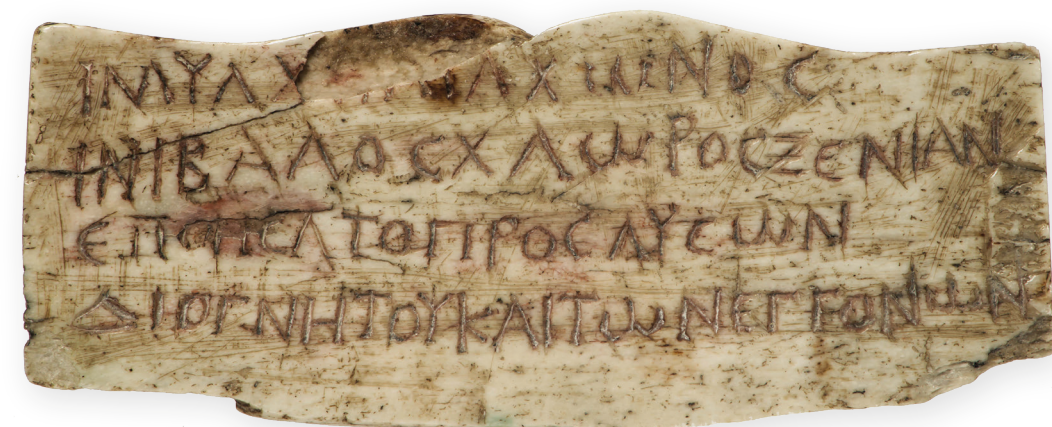 ΙΜΥΛΧ
ΙΝΙΒΑΛΟϹ ΧΛΩΡΟϹ ΞΕΝΙΑΝ
ΕΠΟΗϹΑΤΟ ΠΡΟϹ ΛΥϹΩΝ
ΔΙΟΓΝΗΤΟΥ ΚΑΙ ΤΩΝ ΕΓΓΟΝΩΝ